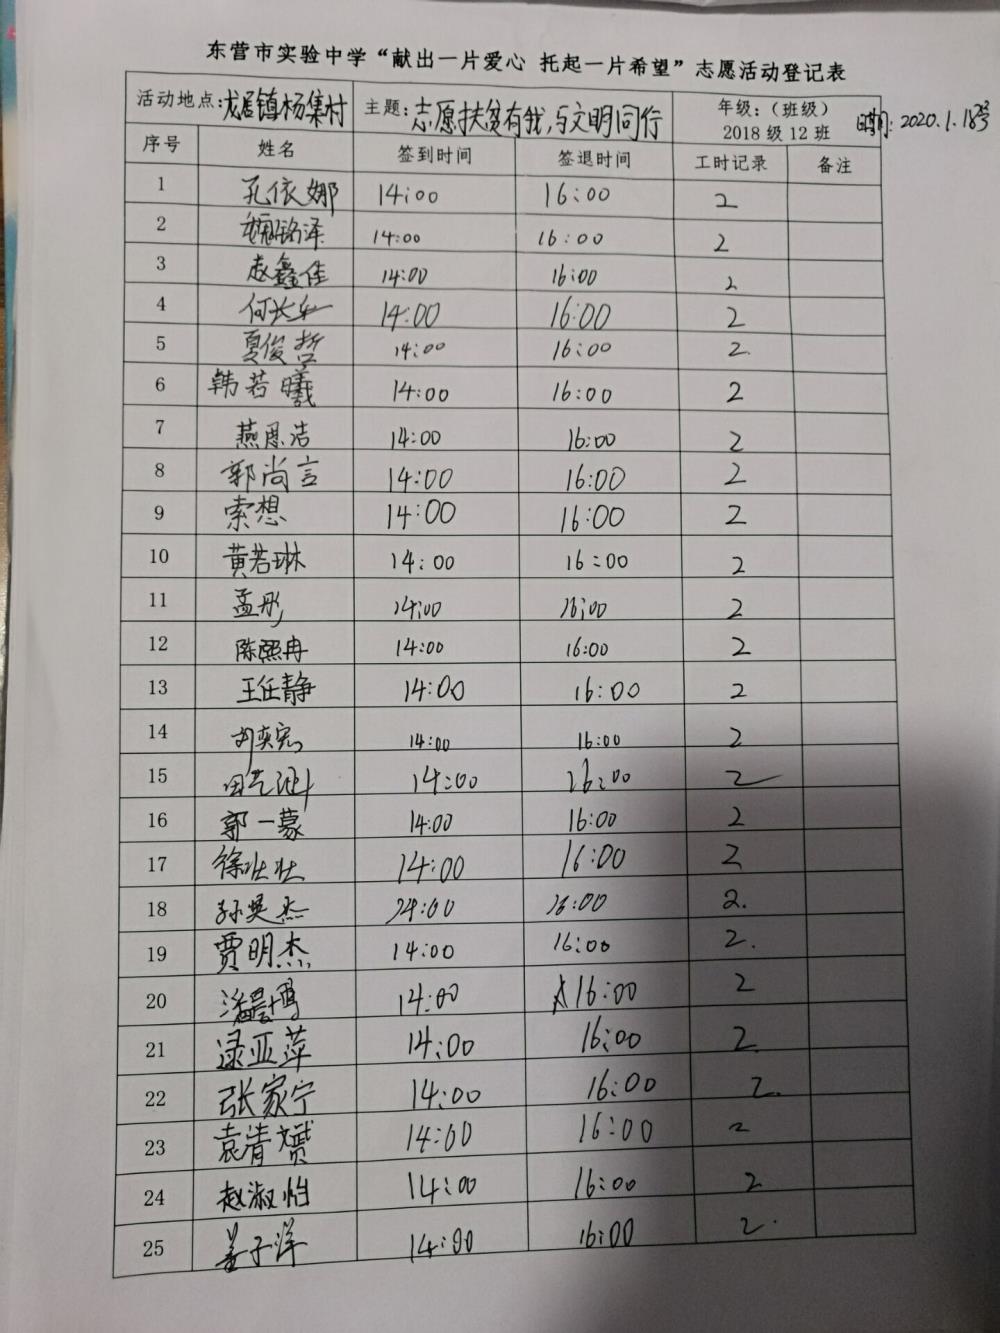 东营市实验中学“献出一片爱心 托起一片希望”志愿活动登记表
活动地点:龙居镇杨集村 主题:志愿扶贫有我,与文明同行 年级:(班级) 2018 级 12 班 日期:2020.1.18号
序号 姓名 签到时间 签退时间 工时记录 备注
1 孔依娜 14:00 16:00 2
2 魏铭泽 14:00 16:00 2
3 赵鑫佳 14:00 16:00 2
4 何长 14:00 16:00 2
5 夏俊哲 14:00 16:00 2.
6 韩若曦 14:00 16:00 2
7 燕恩浩 14:00 16:00 2
8 郭尚言 14:00 16:00 2
9 索想 14:00 16:00 2
10 黄若琳 14:00 16:00 2
11 孟彤 14:00 16:00 2
12 陈熙冉 14:00 16:00 2
13 王任静 14:00 16:00 2
14 刘奕宏 14:00 16:00 2
15 田 14:00 16:00 2
16 郭一蒙 14:00 16:00 2
17 徐壮壮 14:00 16:00 2
18 孙昊杰 14:00 16:00 2.
19 贾明杰 14:00 16:00 2.
20 潘 14:00 16:00 2
21 逯亚萍 14:00 16:00 2.
22 张家宁 14:00 16:00 2.
23 袁清赟 14:00 16:00 2
24 赵淑怡 14:00 16:00 2
25 姜子洋 14:00 16:00 2.